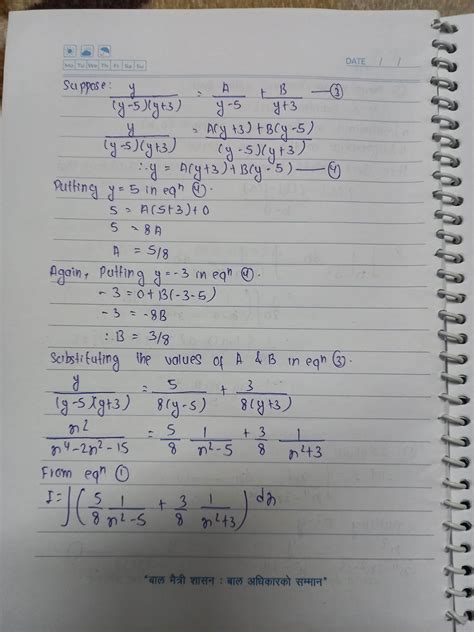 Mo Tu We Th Fr Sa Su
DATE / /
Suppose: y/((y-5)(y+3)) = A/(y-5) + B/(y+3) — ③
y/((y-5)(y+3)) = (A(y+3)+B(y-5))/((y-5)(y+3))
∴ y = A(y+3)+B(y-5) — ④
Putting y=5 in eqⁿ ④.
5 = A(5+3)+0
5 = 8A
A = 5/8
Again, Putting y=-3 in eqⁿ ④.
-3 = 0+B(-3-5)
-3 = -8B
∴ B = 3/8
Substituting the values of A & B in eqⁿ ③.
y/((y-5)(y+3)) = 5/(8(y-5)) + 3/(8(y+3))
x²/(x⁴-2x²-15) = 5/8 1/(x²-5) + 3/8 1/(x²+3)
From eqⁿ ①
I = ∫(5/8 1/(x²-5) + 3/8 1/(x²+3)) dx
"बाल मैत्री शासन : बाल अधिकारको सम्मान"